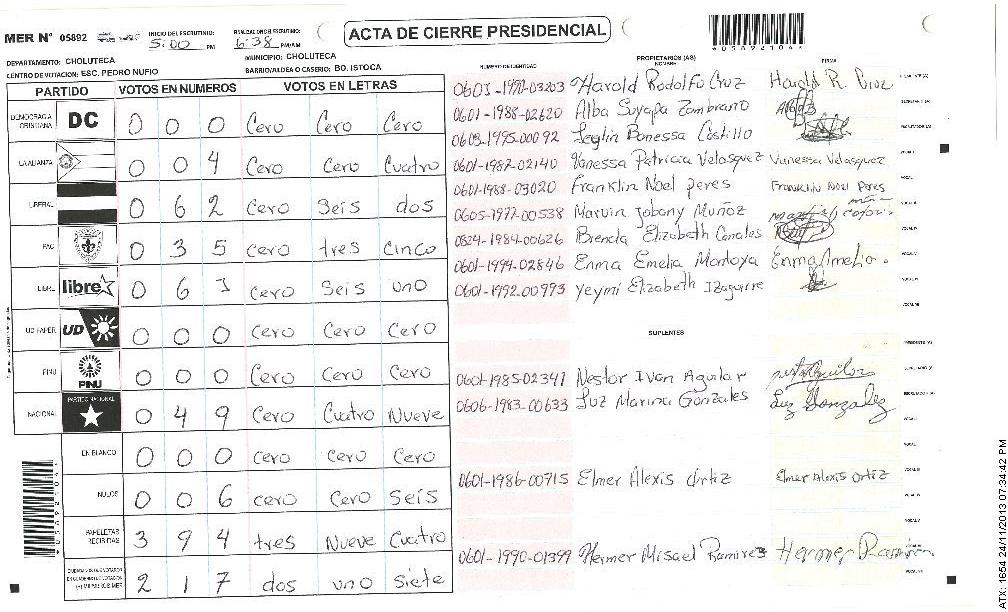 MER N° 05892
INICIO DEL ESCRUTINIO:
5:00 PM
6:38 PM/AM
ACTA DE CIERRE PRESIDENCIAL
DEPARTAMENTO: CHOLUTECA
MUNICIPIO: CHOLUTECA
CENTRO DE VOTACION: ESC. PEDRO NUFIO
BARRIO/ALDEA O CASERIO: BO. ISTOCA
PARTIDO VOTOS EN NUMEROS VOTOS EN LETRAS
DEMOCRACIA CRISTIANA DC 0 0 0 Cero Cero Cero
LA ALIANZA 0 0 4 Cero Cero Cuatro
LIBERAL 0 6 2 Cero Seis dos
PAC 0 3 5 cero tres cinco
LIBRE libre 0 6 1 cero Seis uno
UD FAPER UD 0 0 0 cero Cero Cero
PINU PINU 0 0 0 Cero Cero Cero
NACIONAL PARTIDO NACIONAL 0 4 9 Cero Cuatro Nueve
EN BLANCO 0 0 0 cero cero Cero
NULOS 0 0 6 cero Cero Seis
PAPELETAS RECIBIDAS 3 9 4 tres Nueve Cuatro
2 1 7 dos uno siete
NUMERO DE IDENTIDAD
PROPIETARIOS (AS)
NOMBRE
FIRMA
Harold Rodolfo Cruz Harold R. Cruz
0601-1988-02620 Alba Suyapa Zambrano
0603-1995-00092
0601-1987-02140 Vanessa Patricia Velasquez Vanessa Velasquez
0601-1988-03020 Franklin Noel peres Franklin Noel Peres
0605-1977-00538 Marvin Jobany Muñoz
0824-1984-00626 Brenda Elizabeth Canales
0601-1994-02846 Enma Emelia Montoya Enma Amelia
0601-1992-00993 Yeymi Elizabeth Izaguirre
SUPLENTES
0601-1985-02341 Nestor Ivan Aguilar
0606-1983-00633 Luz Marina Gonzales Luz Gonzalez
0601-1986-00715 Elmer Alexis Ortiz Elmer Alexis Ortiz
0601-1990-01399 Hermer Misael Ramires
ATX: 1654 24/11/2013 07:34:42 PM